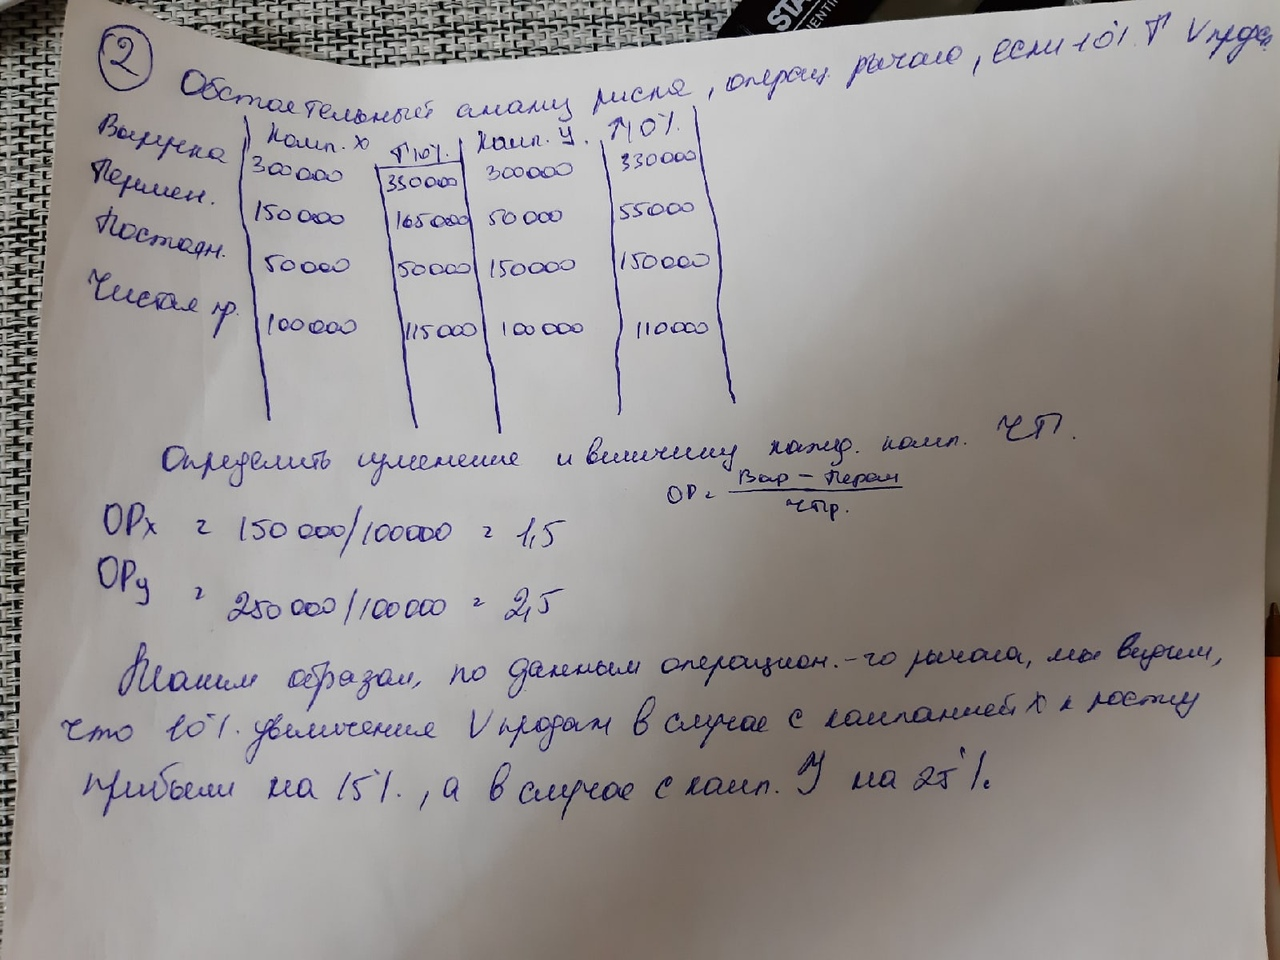 STA
MENTI
② Обстоятельный анализ риска, операц. рычаго, если 10% ↑ Vпрод.
Выручка | Комп. X | ↑10% | Комп. У. | ↑10%
300000 | 330000 | 300000 | 330000
Перемен. | 150000 | 165000 | 50000 | 55000
Постоян. | 50000 | 50000 | 150000 | 150000
Чистая пр. | 100000 | 115000 | 100000 | 110000
Определить изменение и величину кажд. комп. ЧП.
ОР = Выр – Перем / ЧПр.
ОРх = 150000/100000 = 1,5
ОРу = 250000/100000 = 2,5
Таким образом, по данным операцион.-го рычага, мы видим,
что 10% увеличения Vпродаж в случае с компанией X к росту
прибыли на 15%, а в случае с комп. У на 25%.